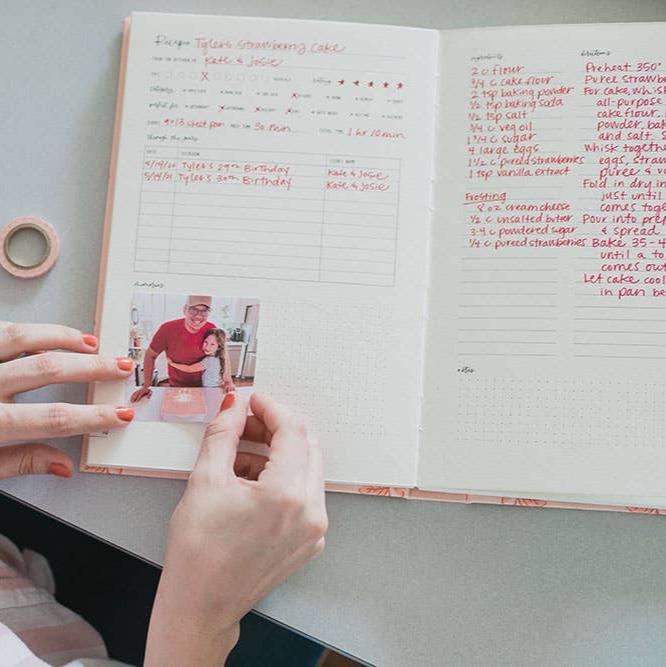 Recipe Tyler's Strawberry Cake
Kate & Josie
9x13 sheet pan
30 min
1 hr 10 min
through the years
DATE
5/14/20 Tyler's 29th Birthday Kate & Josie
5/14/21 Tyler's 30th Birthday Kate & Josie
memories
ingredients
2 c flour
3/4 c cake flour
2 tsp baking powder
1/2 tsp baking soda
1/2 tsp salt
3/4 c veg oil
1 3/4 c sugar
4 large eggs
1 1/2 c pureed strawberries
1 tsp vanilla extract
Frosting
8 oz cream cheese
1/2 c unsalted butter
3-4 c powdered sugar
1/4 c pureed strawberries
notes
directions
Preheat 350°
Puree strawbe
For cake, whisk
all-purpose
cake flour,
powder, bak
and salt
Whisk together
eggs, straw
puree & va
Fold in dry in
just until
comes toge
Pour into prep
& spread
Bake 35-4
until a to
comes ou
Let cake cool
in pan be